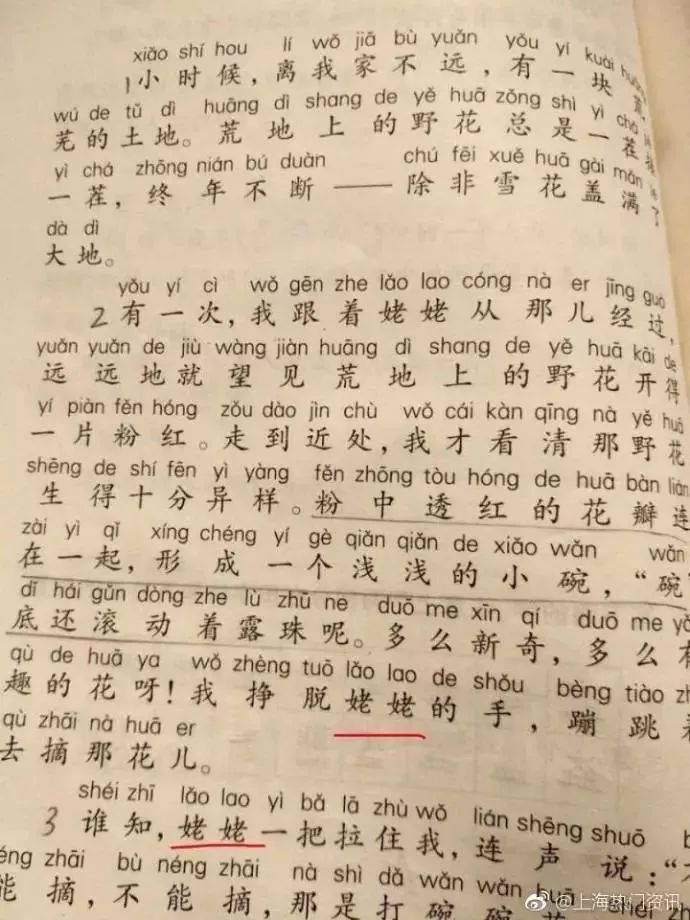 xiǎo shí hou lí wǒ jiā bù yuǎn yǒu yí kuài
1小时候，离我家不远，有一块
wú de tǔ dì huāng dì shang de yě huā zǒng shì yì chá
芜的土地。荒地上的野花总是一茬
yì chá zhōng nián bú duàn chú fēi xuě huā gài mǎn
一茬，终年不断——除非雪花盖满了
dà dì
大地。
yǒu yí cì wǒ gēn zhe lǎo lao cóng nà er jīng guò
2有一次，我跟着姥姥从那儿经过，
yuǎn yuǎn de jiù wàng jiàn huāng dì shang de yě huā kāi de
远远地就望见荒地上的野花开得
yí piàn fěn hóng zǒu dào jìn chù wǒ cái kàn qīng nà yě huā
一片粉红。走到近处，我才看清那野花
shēng de shí fēn yì yàng fěn zhōng tòu hóng de huā bàn lián
生得十分异样。粉中透红的花瓣连
zài yì qǐ xíng chéng yí gè qiǎn qiǎn de xiǎo wǎn wǎn
在一起，形成一个浅浅的小碗，“碗”
dǐ hái gǔn dòng zhe lù zhū ne duō me xīn qí duō me
底还滚动着露珠呢。多么新奇，多么有
qù de huā ya wǒ zhèng tuō lǎo lao de shǒu bèng tiào
趣的花呀！我挣脱姥姥的手，蹦跳着
qù zhāi nà huā er
去摘那花儿。
shéi zhī lǎo lao yì bǎ lā zhù wǒ lián shēng shuō
3谁知，姥姥一把拉住我，连声说：“
néng zhāi bù néng zhāi nà shì dǎ wǎn wǎn huā
能摘，不能摘，那是打碗碗
@上海热门资讯